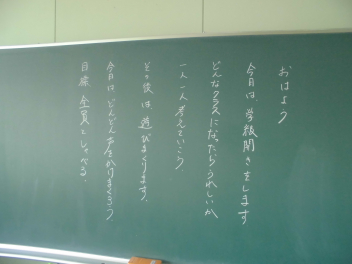 おはよう
今日は、学級開きをします
どんなクラスになったらうれしいか
一人一人考えていこう。
その後は、遊びまくります。
今日は、どんどん声をかけまくろう
目標 全員としゃべる。